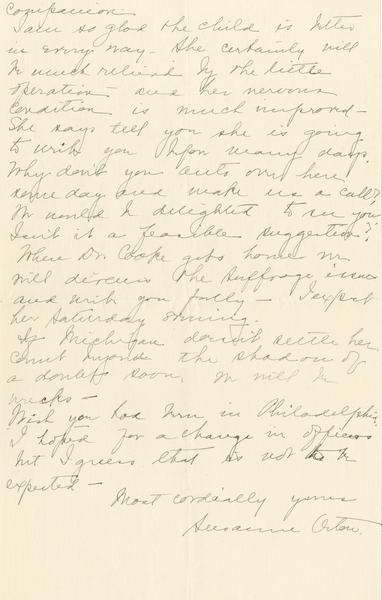 companion.
I am so glad the child is better
in every way. She certainly will
be much relieved by the little
operation – and her nervous
condition is much improved –
She says tell you she is going
to write you upon many days.
Why don't you auto over here
some day and make us a call?
We would be delighted to see you.
Isn't it a feasible suggestion?
When Dr. Cooke gets home we
will discuss the suffrage issue
and write you fully – I expect
her Saturday evening.
If Michigan doesn't settle her
count beyond the shadow of
a doubt soon, we will be
wrecks –
Wish you had been in Philadelphia.
I hoped for a change in officers
but I guess that is not to be
expected –
Most cordially yours
Susanne Orton.